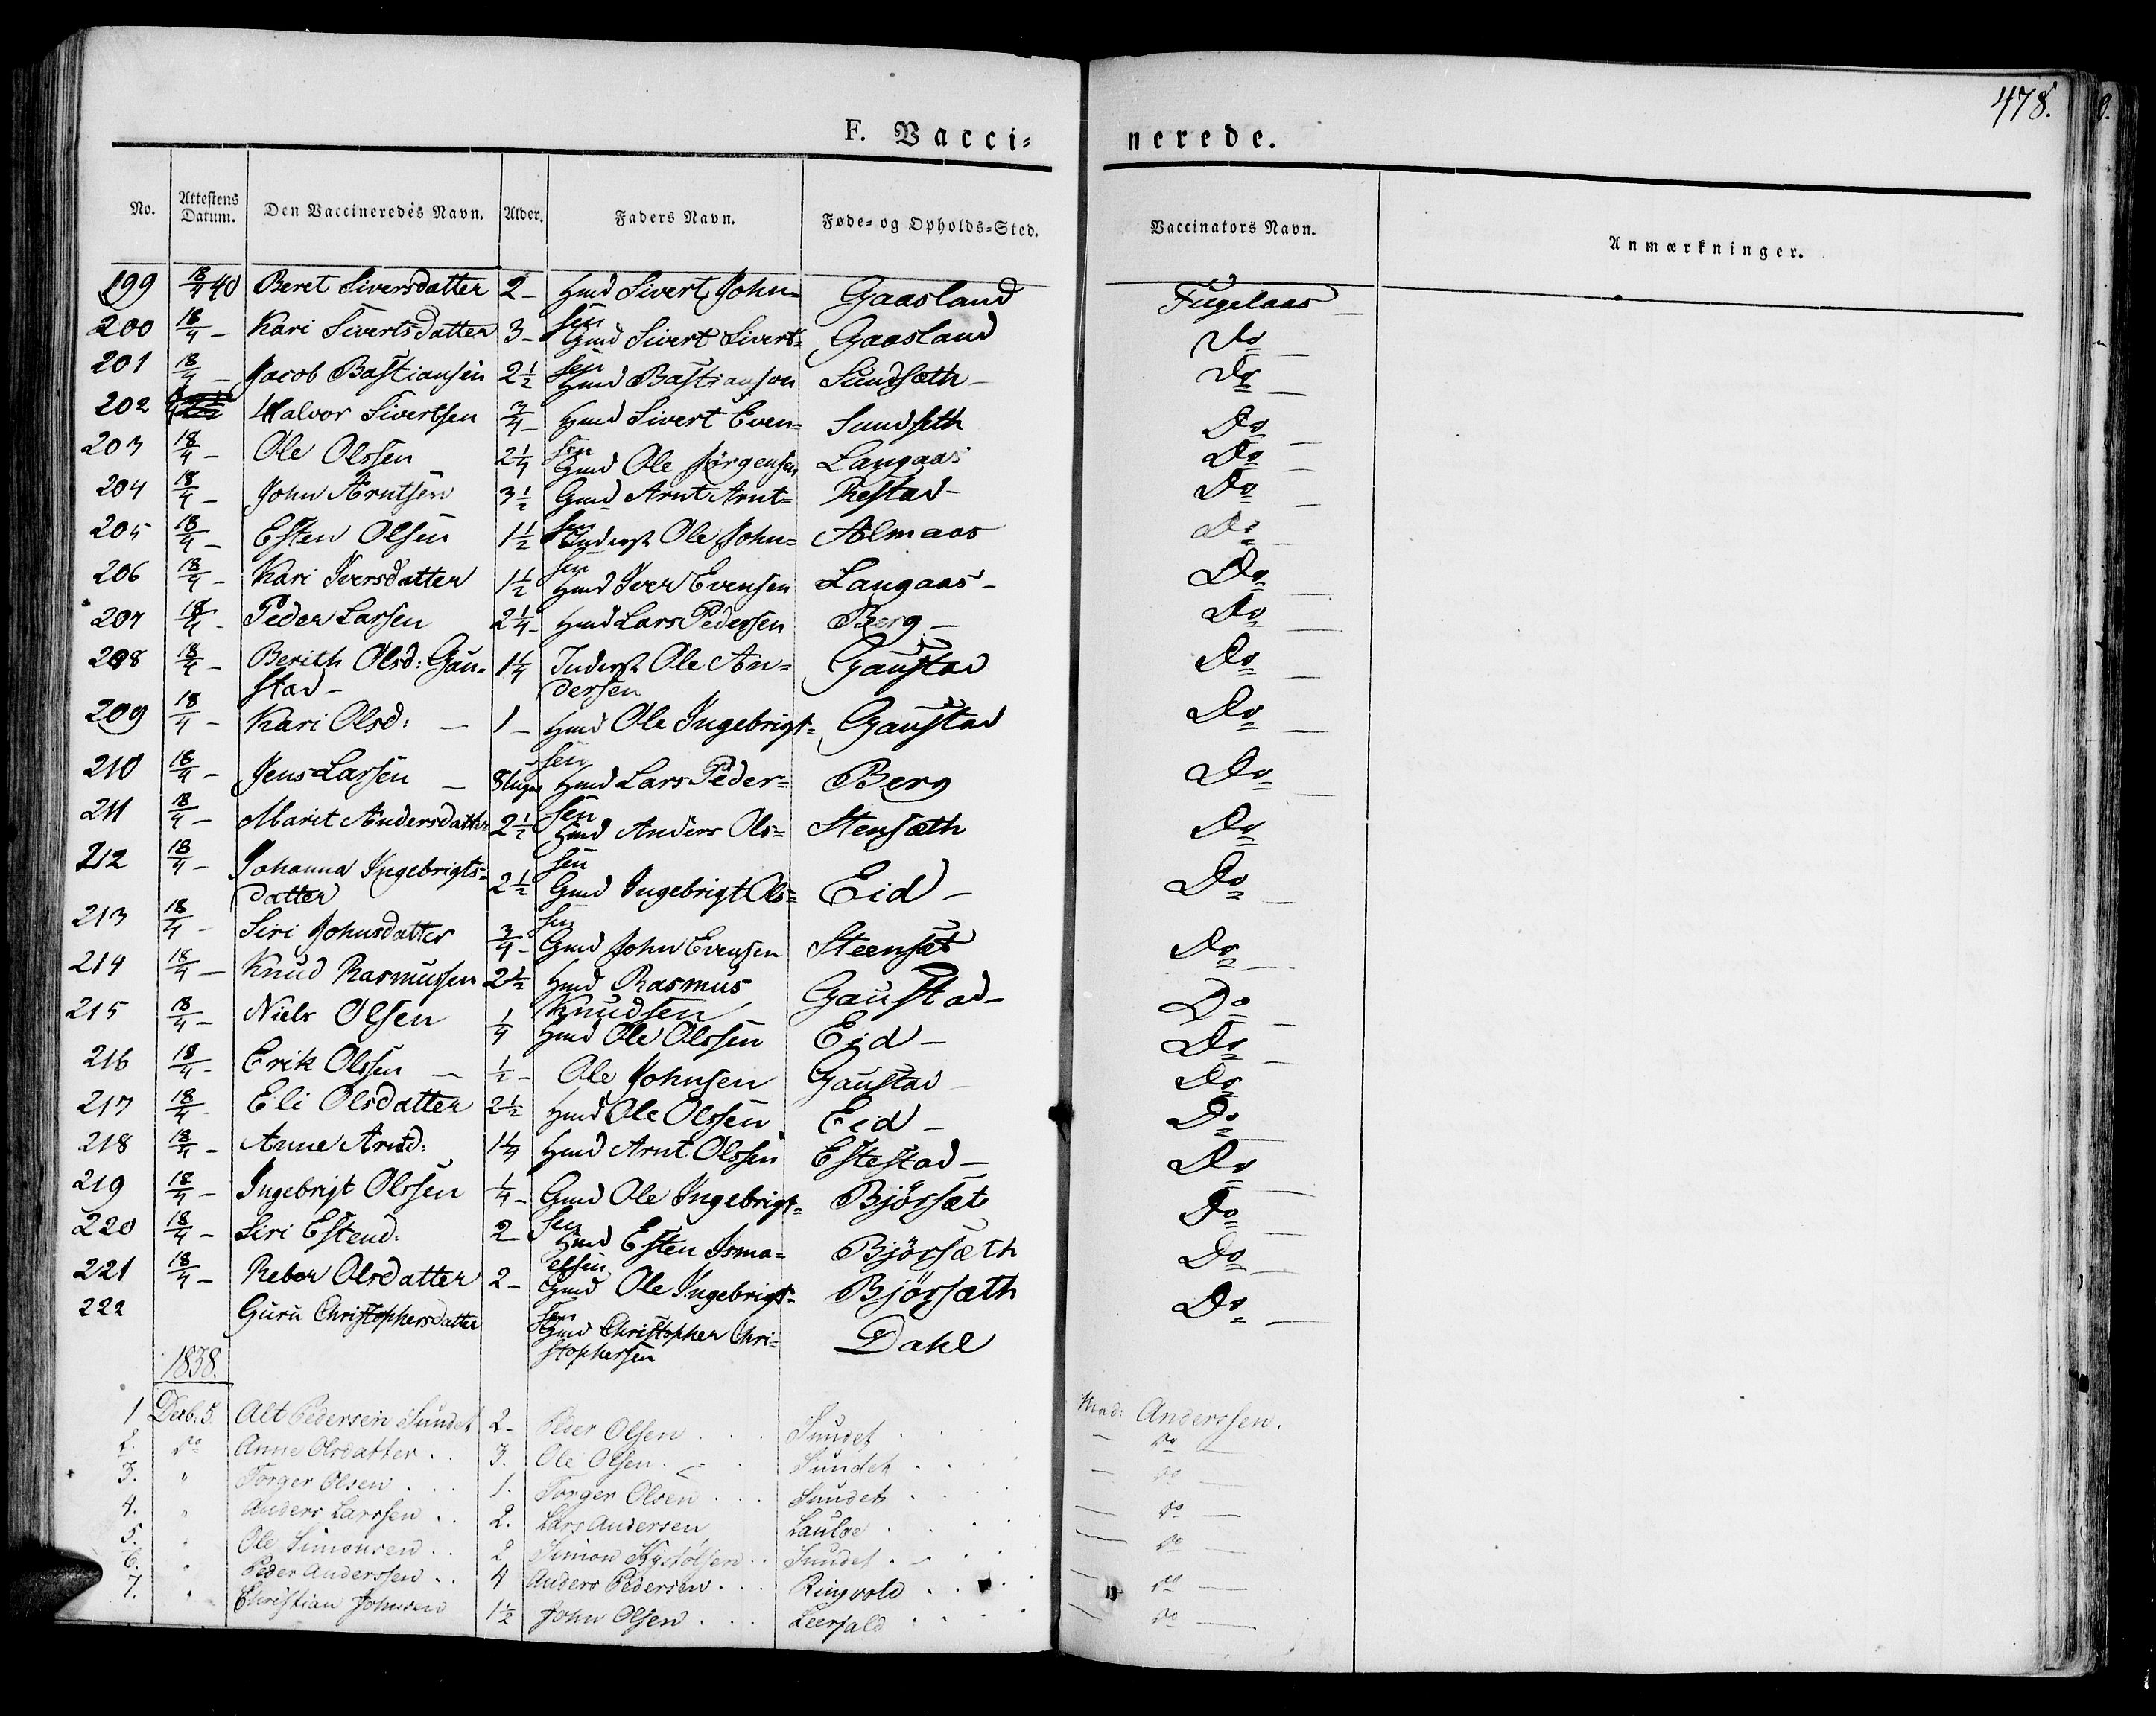 478.
F. Vacci=
nerede.
No. Attestens Datum. Den Vaccineredes Navn. Alder. Faders Navn. Føde= og Opholds=Sted. Vaccinators Navn. Anmærkninger.
199 18/4 40 Beret Siversdatter 2 - Hmd Sivert John= Gaasland Fugelaas -
sen
200 18/4 - Kari Sivertsdatter 3 - Gmd Sivert Sivert= Gaasland Do -
sen
201 18/4 - Jacob Bastiansen 2 1/2 Hmd Bastianson Sundsæth - Do -
202 Halvor Sivertsen 3/4 - Hmd Sivert Even= Sundseth Do -
sen
203 18/4 - Ole Olssen 2 1/4 Gmd Ole Jörgensen Langaas Do -
204 18/4 - John Arntsen 3 1/2 Gmd Arnt Arnt= Restad - Do -
sen
205 18/4 - Esten Olsen 1 1/2 Inderst Ole John= Almaas Do -
sen
206 18/4 - Kari Iversdatter 1 1/2 Hmd Iver Evensen Langaas - Do -
207 18/4 - Peder Larsen 2 1/4 - Hmd Lars Pedersen Berg - Do -
208 18/4 - Berith Olsd: Gau= 1 1/4 Inderst Ole An= Gaustad Do -
stad - dersen
209 18/4 - Kari Olsd: - 1 - Hmd Ole Ingebrigt= Gaustad Do -
sen
210 18/4 - Jens Larsen - 8 Uger Hmd Lars Peder= Berg Do -
sen
211 18/4 - Marit Andersdatter 2 1/2 Hmd Anders Ols= Stensæth Do -
sen
212 18/4 - Johanna Ingebrigts= 2 1/2 Gmd Ingebrigt Ols= Eid - Do -
datter sen
213 18/4 - Siri Johnsdatter 3/4 - Gmd John Evensen Steensæt Do -
214 18/4 - Knud Rasmussen 2 1/2 Hmd Rasmus Gaustad - Do -
Knudsen
215 18/4 - Niels Olsen 1/4 Hmd Ole Olssen Eid - Do -
216 18/4 - Erik Olssen - 1/2 - Ole Johnsen Gaustad - Do
217 18/4 - Eli Olsdatter 2 1/2 Hmd Ole Olssen Eid - Do -
218 18/4 - Anne Arntd: 1 1/4 Hmd Arnt Olssen Estestad - Do -
219 18/4 - Ingebrigt Olssen 1/4 - Gmd Ole Ingebrigt= Björsæt Do -
sen
220 18/4 - Siri Estend. 2 - Hmd Esten Isma= Björsæth Do -
elsen
221 18/4 - Reber Olsdatter 2 - Gmd Ole Ingebrigt= Björsæth Do -
sen
222 Guru Christophersdatter Gmd Christopher Chri= Dahl
stophersen
1838.
1 Decb. 5. Alt Pedersen Sundet 2 - Peder Olsen . . . Sundet . Mad: Anderssen.
2. do Anne Olsdatter . . 3. Ole Olsen . . . Sundet . . . - do -
3. " Torger Olsen . . . 1. Torger Olsen . . . Sundet . . . - do -
4. " Anders Larssen . . 2. Lars Andersen Lauloe . . . - do -
5. " Ole Simonsen . . 2 Simon . . Sundet . . . - do -
6. " Peder Anderssen . . 4 Anders Pedersen . . . Ringvold . . . - do -
7. " Christian Johnsen 1 1/2 John Olsen . . . Leerfald . . . - do -